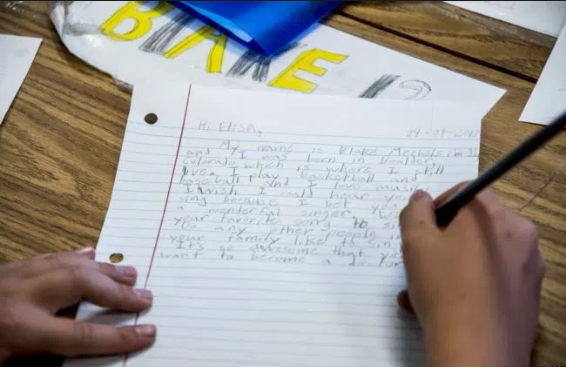 BLAKE
Hi Elisa,
My name is Blake
and I was born in Boulder,
Colorado which is where I still
live. I play basketball and
baseball and I love music.
I wish I could hear you
sing because I bet you
a wonderful singer.
your favorite song to
Do any other people in
your family like to sin
It's so awesome that yo
want to become a doctor